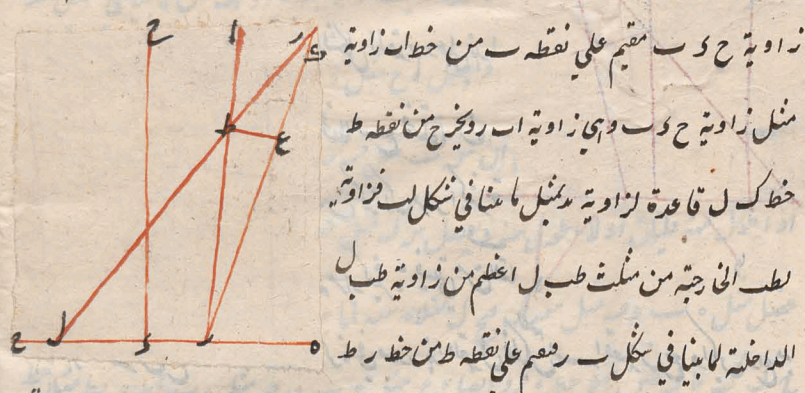 زاوية ح د ب مقيم علي نقطه ب من خط اب زاوية
مثل زاوية ح د ب وهي زاوية اب ر ويخرج من نقطه ط
خط ك ل قاعدة لزاوية بمثل ما عنا في شكل لب فزاوية
لطب الخارجة من مثلث طب ل اعظم من زاوية طب ل
الداخلة لما بينا في شكل ب ر ونقيم علي نقطه ط من خط ر ط